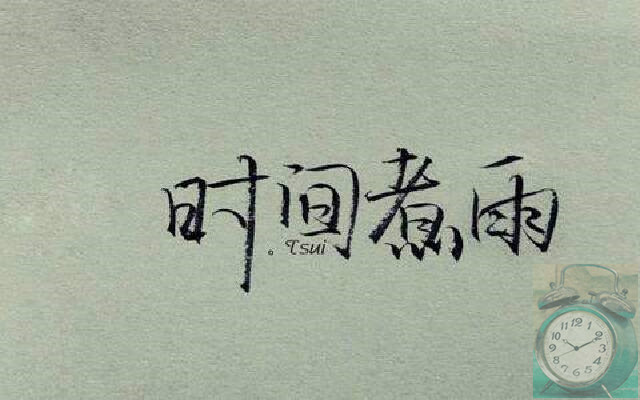 时间煮雨
。Tsui
12
1
2
3
4
5
6
7
8
9
10
11